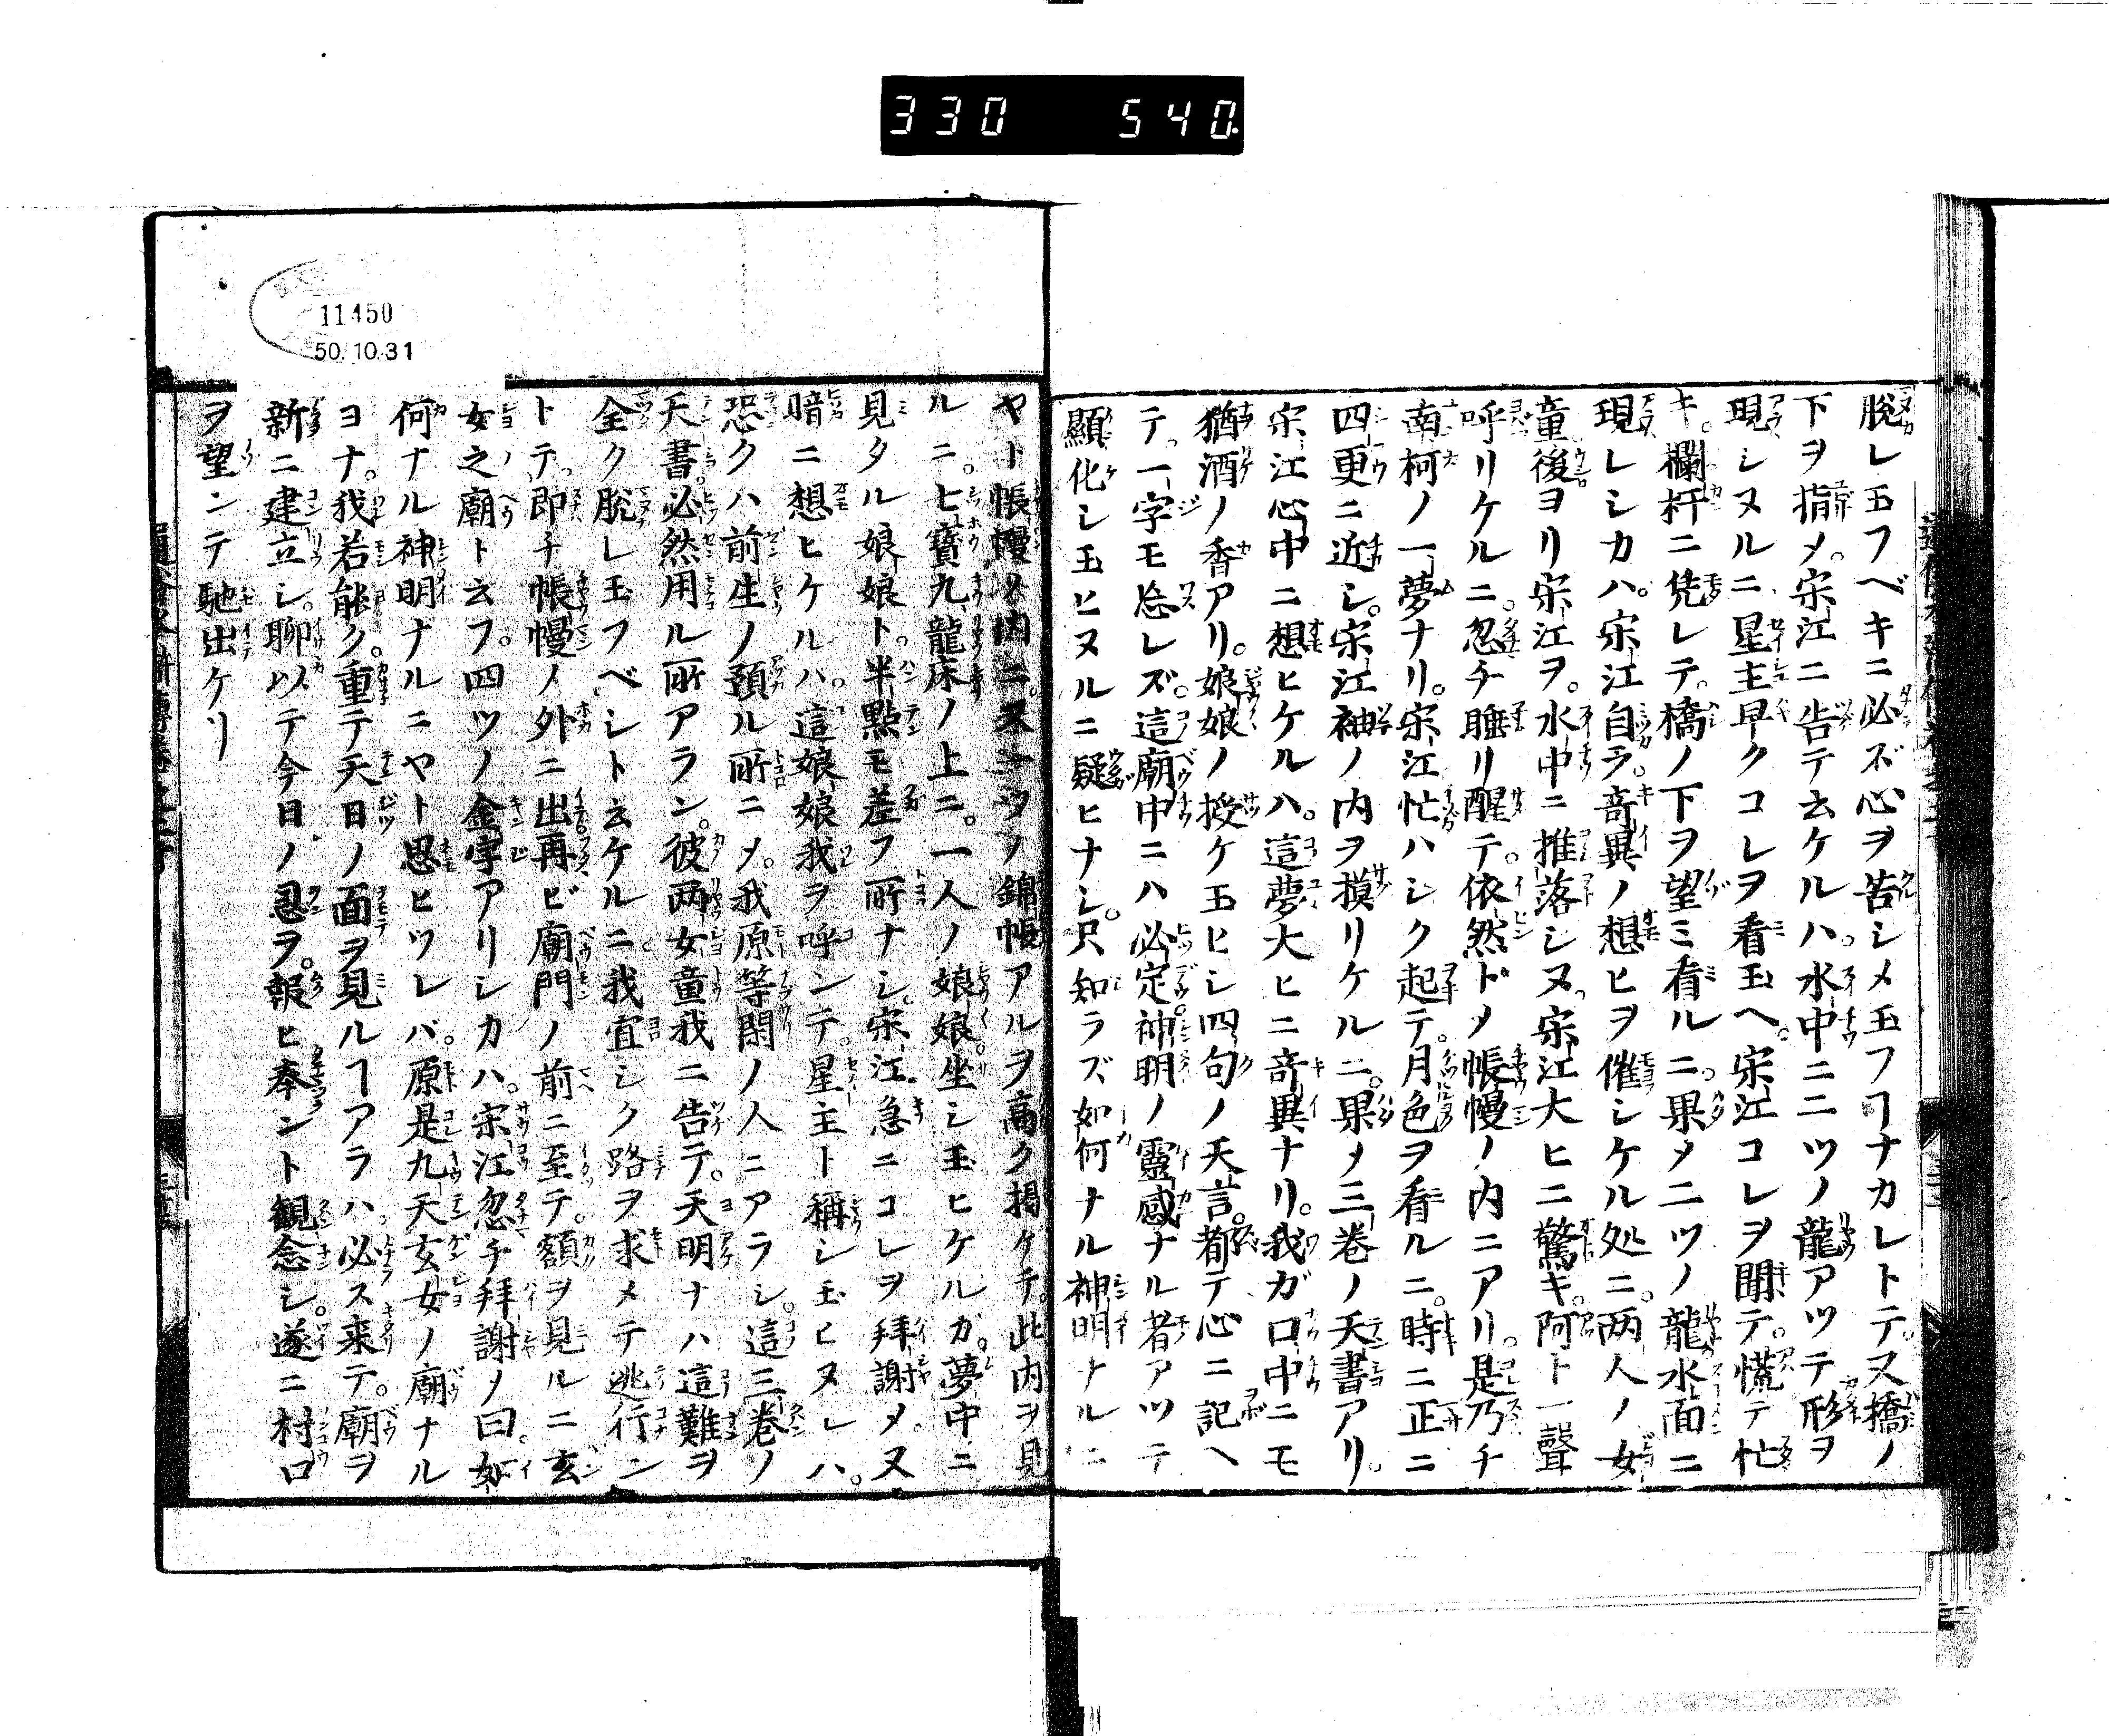 330 540.
脱レ玉フベキニ必ズ心ヲ苦シメ玉フヿナカレトテ。又橋ノ
下ヲ揩メ。宋江ニ告テ云ケルハ。水中ニ二ツノ龍アツテ形ヲ
現シヌルニ星主早クコレヲ看玉ヘ。宋江コレヲ聞テ。慌テ忙
キ。欄杆ニ凭レテ。橋ノ下ヲ望ミ看ルニ。果メ二ツノ龍水面ニ
現レシカハ。宋江自ラ。竒異ノ想ヒヲ催シケル処ニ。両人ノ女
童後ヨリ宋江ヲ。水中ニ推落シヌ。宋江大ヒニ驚キ。阿ト一聲
呼リケルニ。忽チ睡リ醒テ。依然トメ帳幔ノ内ニアリ。是乃チ
南柯ノ一夢ナリ。宋江忙ハシク起テ。月色ヲ看ルニ。時ニ正ニ
四更ニ近シ。宋江袖ノ内ヲ摸リケルニ。果メ三巻ノ天書アリ。
宋江心中ニ想ヒケルハ。這夢大ヒニ竒異ナリ。我ガ口中ニモ
猶酒ノ香アリ。娘娘ノ授ケ玉ヒシ四句ノ天言。都テ心ニ記ヘ
テ。一字モ忘レズ。這廟中ニハ必定神明ノ靈感ナル者アツテ
顯化シ玉ヒヌルニ疑ヒナシ。只知ラズ如何ナル神明ナルニ
11450
50.10.31
ヤト帳幔ノ内ニ一ツノ錦帳アルヲ高ク揭ケテ。此内ヲ見
ルニ。七寳九龍床ノ上ニ。一人ノ娘娘。坐シ玉ヒケルガ。夢中ニ
見タル娘娘ト。半點モ差フ所ナシ。宋江急ニコレヲ拜謝メ。又
暗ニ想ヒケルハ。這娘娘我ヲ呼ンテ。星主ト稱シ玉ヒヌレハ。
恐クハ前生ノ預ル所ニメ。我原等閑ノ人ニアラシ。這三巻ノ
天書。必然用ル所アラン。彼両女童我ニ告テ。天明ナハ這難ヲ
全ク脱レ玉フベシト云ケルニ我宜シク路ヲ求メテ逃行ン
トテ。即チ帳幔ノ外ニ出再ビ廟門ノ前ニ至テ。額ヲ見ルニ玄
女之廟ト云フ。四ツノ金字アリシカハ。宋江忽チ拜謝ノ曰。如
何ナル神明ナルニヤト思ヒツレバ。原是九天玄女ノ廟ナル
ヨナ。我若能ク。重テ天日ノ面ヲ見ルヿアラハ。必ス来テ。廟ヲ
新ニ建立シ。聊以テ今日ノ恩ヲ。報ヒ奉ント観念シ。遂ニ村口
ヲ望ンテ馳出ケリ